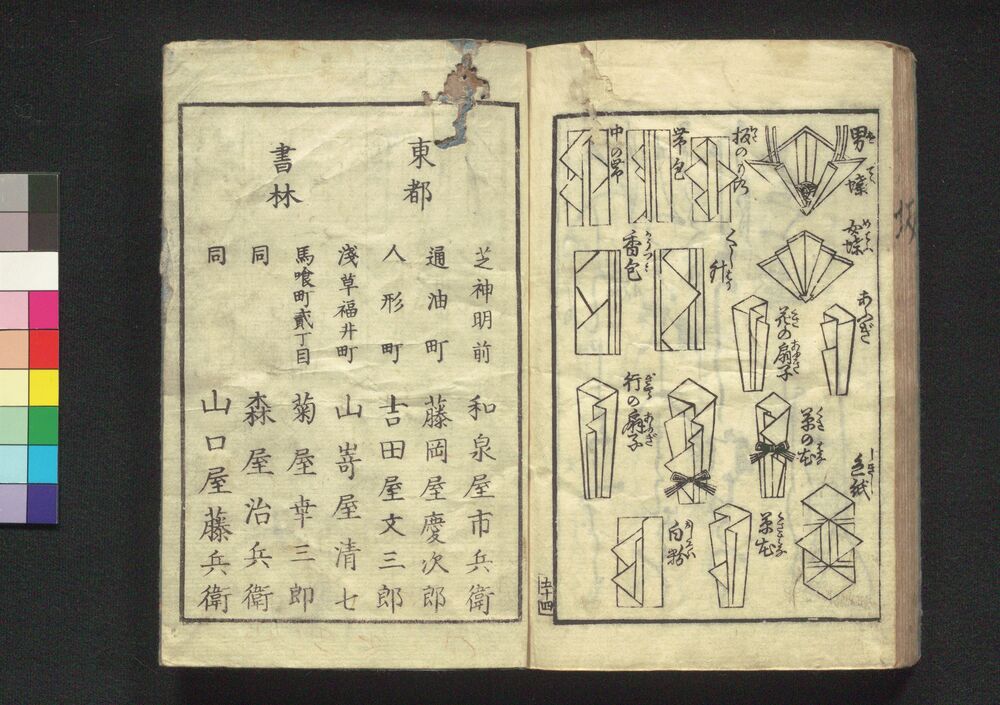 男蝶
女蝶
あふぎ
草の花
色紙
花の扇子
草花
くし針
帯包
中の帯
香包
行の扇子
白粉
五十四
東都
書林
芝神明前 和泉屋市兵衛
通油町 藤岡屋慶次郎
人形町 吉田屋文三郎
淺草福井町 山嵜屋清七
馬喰町貳丁目 菊屋幸三郎
同 森屋治兵衛
同 山口屋藤兵衛